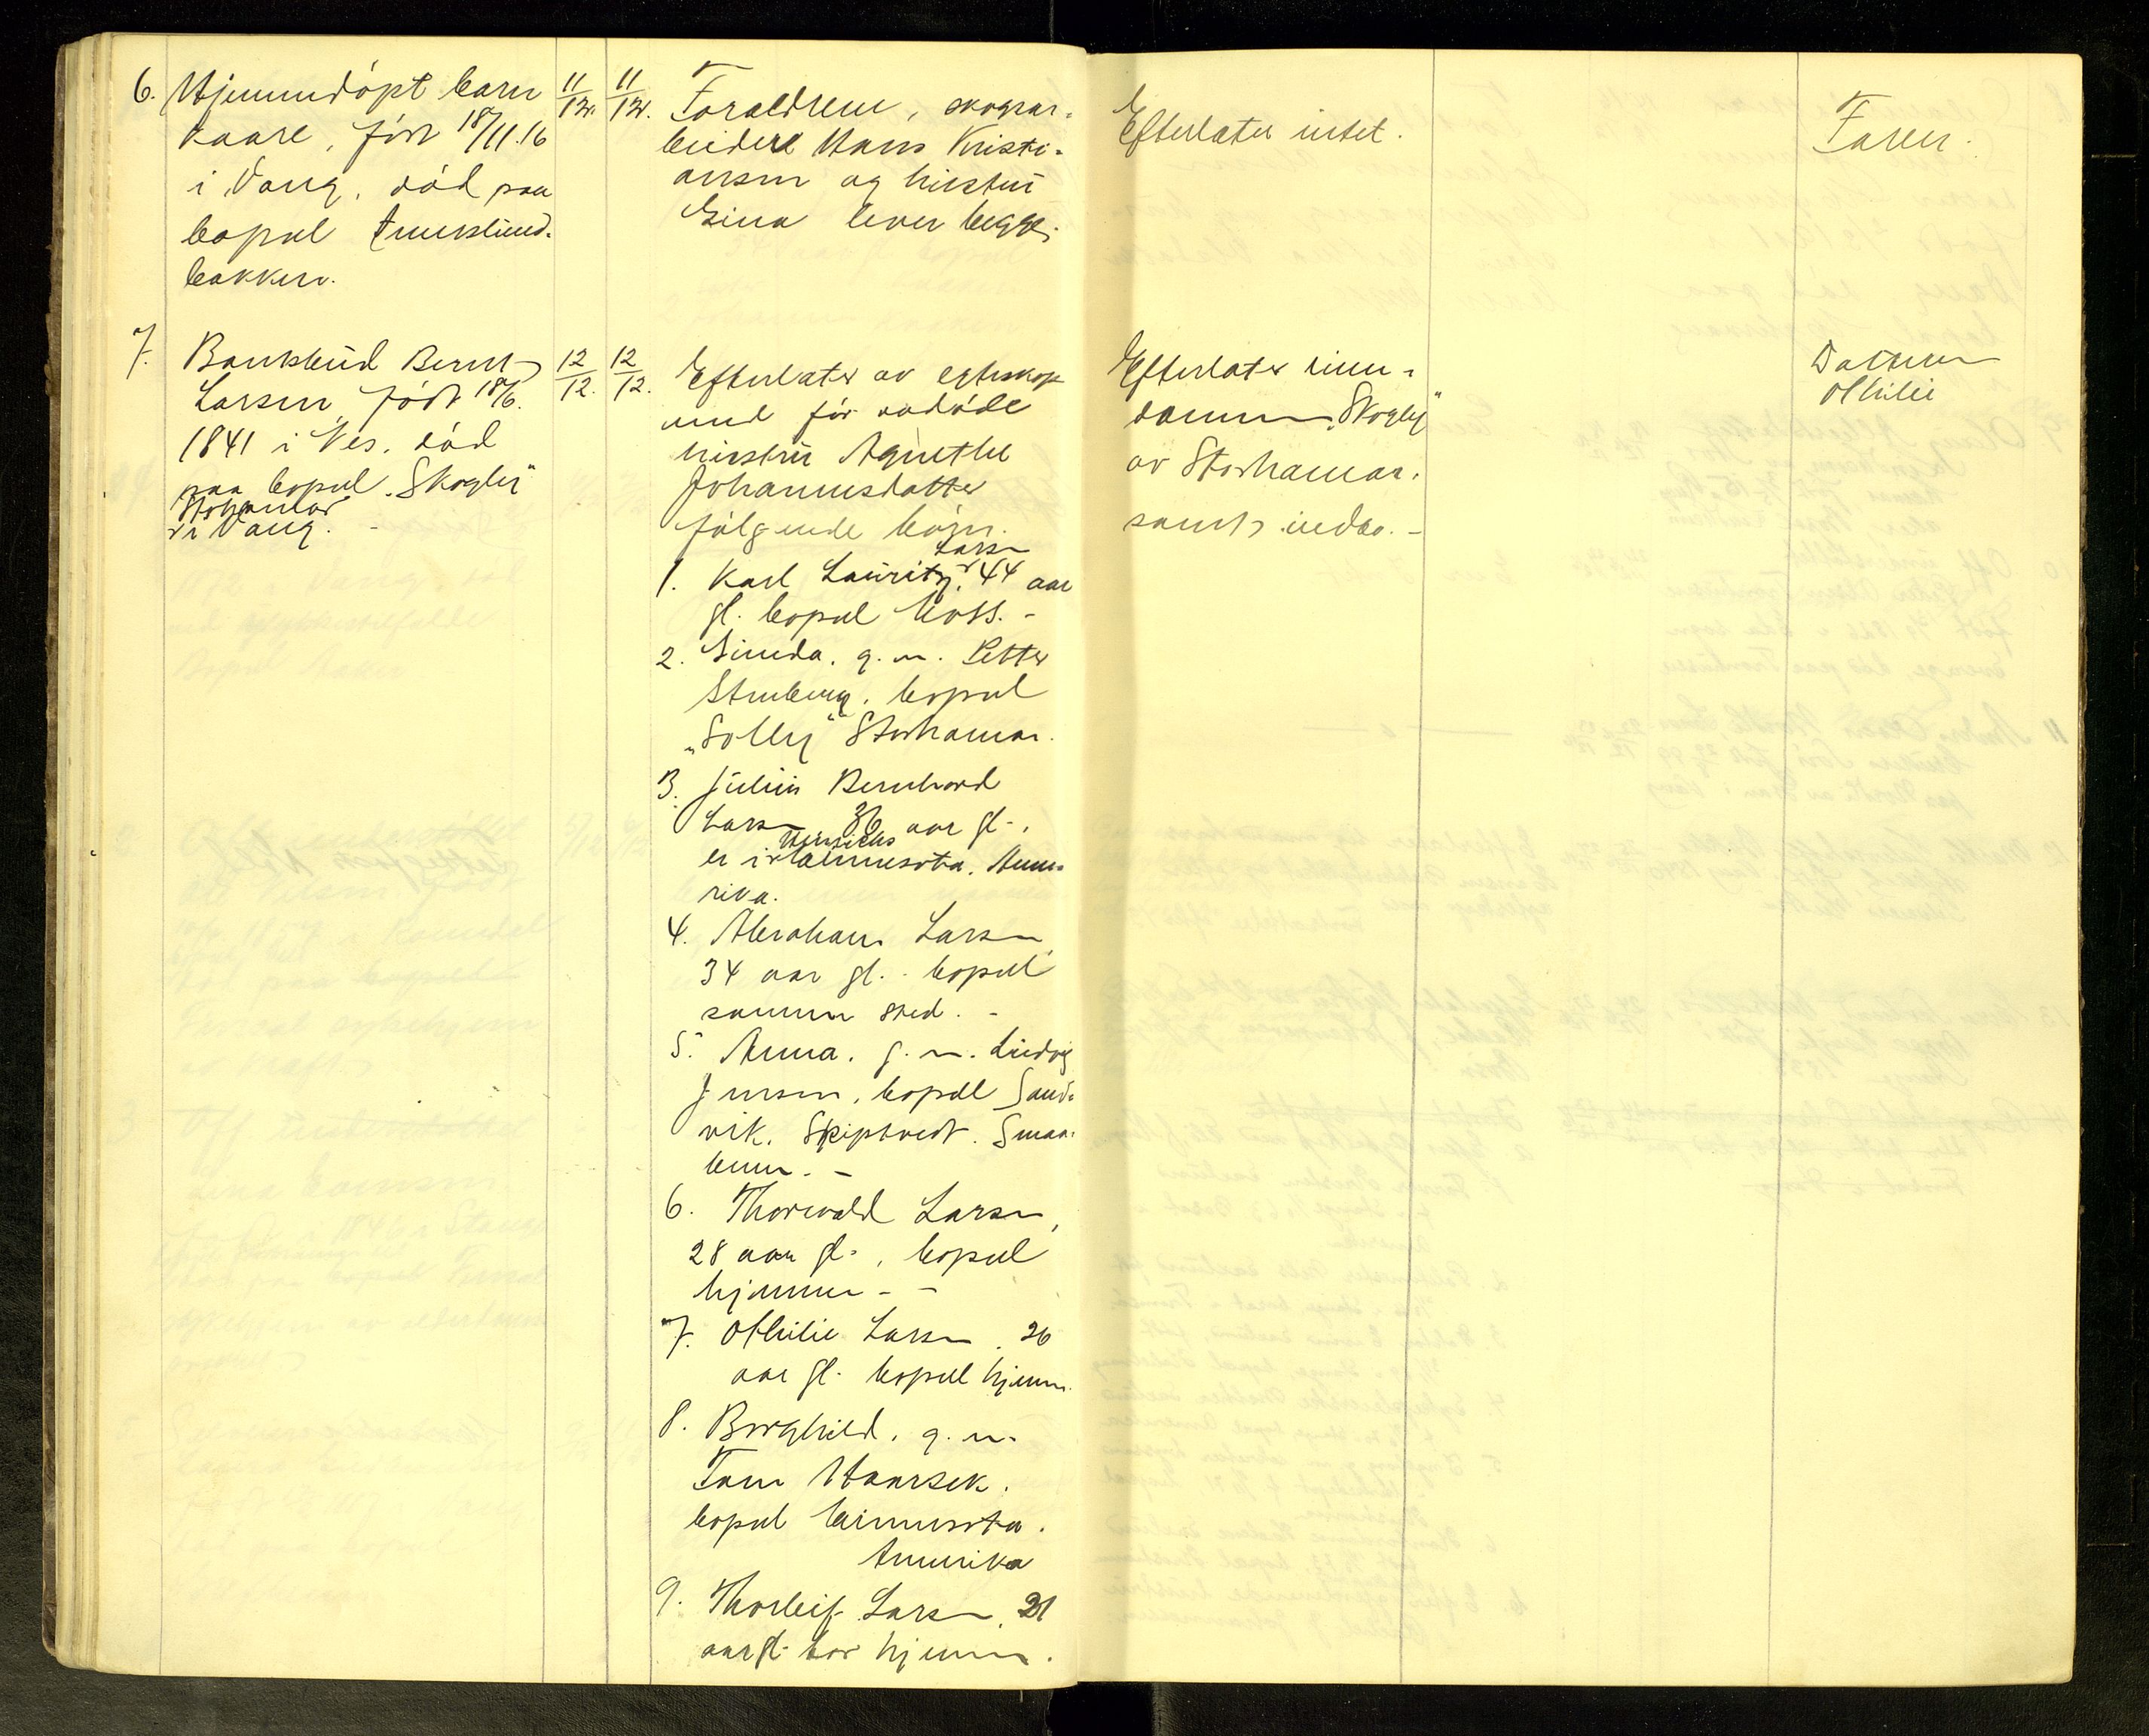 6. Hjemmedöpt barn
Kaare, föt 18/11.16
i Vang, död paa
bopæl Furuslund-
bakken.
11/12. 11/12.
Foraldrene, skogsar-
beidere Hans Kristi-
ansen og hustru
Gina lever begge.
Efterlater intet.
Faren.
7. Bankbud Bernt
Larsen, födt 18/6.
1841 i Nes. död
paa bopæl "Skogly"
Storhamar
i Vang. -
12/12. 12/12.
Efterlater av egteskap
med før avdöde
hustru Agnethe
Johannesdatter
følgende børn.
Larsen
1. Karl Lauritz, 44 aar
gl. bopæl Moss. -
2. Linda. g.m. Petter
Stenberg, bopæl
"Solly" Storhamar.
3. Julius Bernhard
Larsen 36 aar gl.,
er i Minnesota. Ame-
rika.
4. Abraham Larsen,
34 aar gl. bopæl
samme sted. -
5. Anna. g.m. Ludvig
Jensen, bopæl Sand-
vik. Skiptvedt. Smaa-
lenene. -
6. Thorvald Larsen,
28 aar gl., bopæl
hjemme - -
7. Othilie Larsen, 26
aar gl. bopæl hjemme.
8. Borghild, g.m.
Tom Haarsek.
bopæl Minnesota.
Amerika
9. Thorleif Larsen, 21
aar gl. bor hjemme.
Efterlater eien-
dommen "Skogly"
av Storhamar.
samt indbo. -
Datteren
Othilie